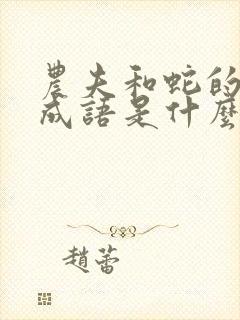 農夫和蛇的
成語是什麼
趙蕾